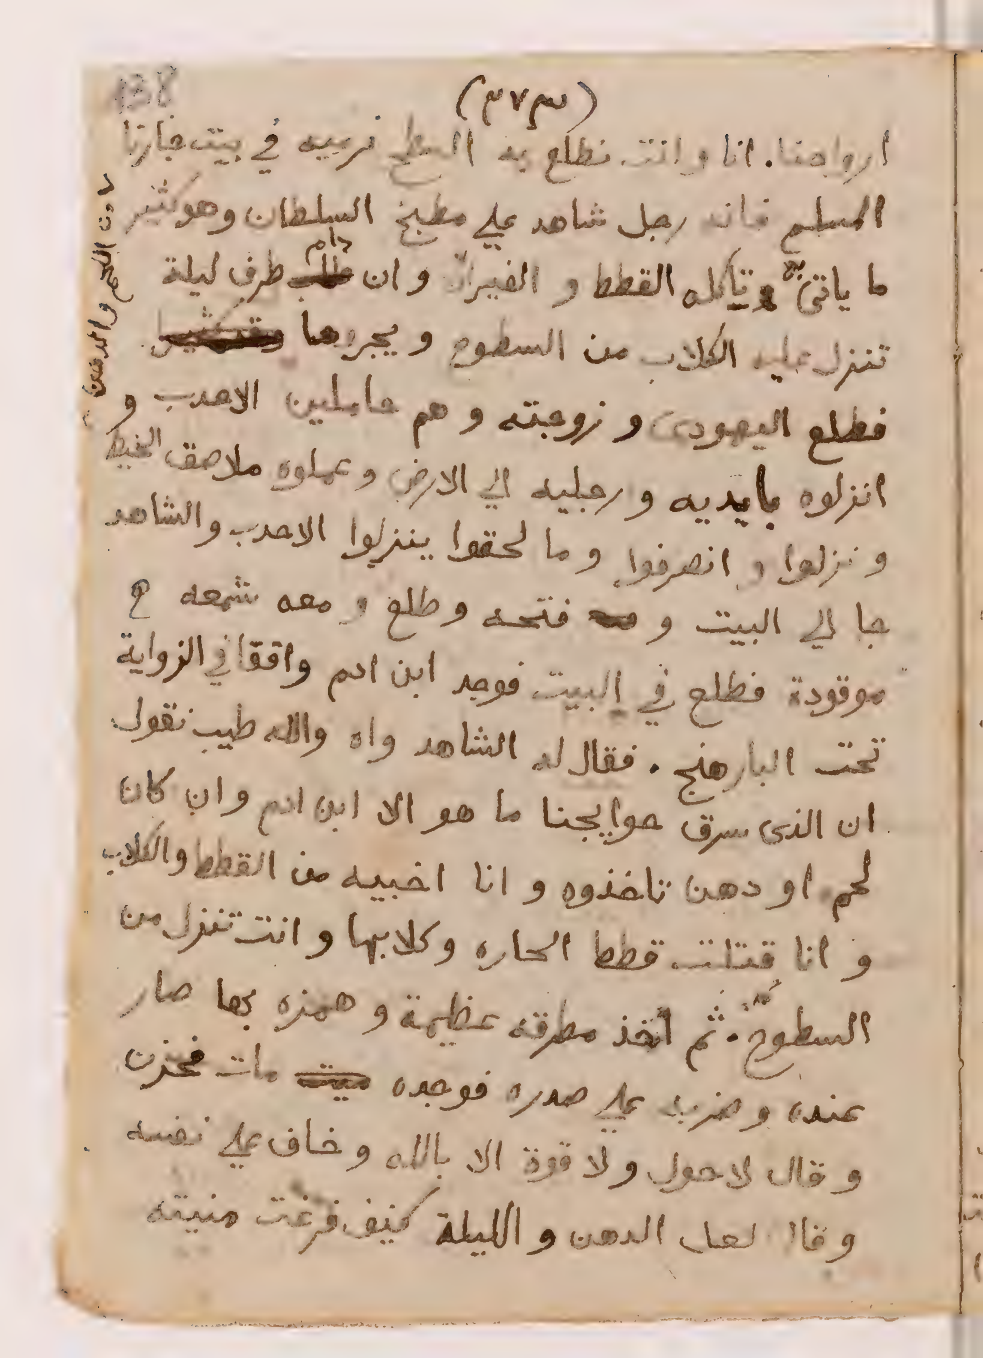 138
(٣٧٣)
ارواحنا. انا وانت نطلع به السطح نرميه في بيت جارنا
المسلم فانه رجل شاهد علي مطبخ السلطان وهو كثير
ما ياتي وتاكله القطط و الفيران وان دام طرف ليلة
تنزل عليه الكلاب من السطوح و يجروها
فطلع اليهودي و زوجته و هم حاملين الاحدب و
انزلوه بايديه و رجليه الي الارض وعملوه ملاصق الحيط
و نزلوا و انصرفوا و ما لحقوا ينزلوا الاحدب والشاهد
جا الي البيت و فتحه وطلع و معه شمعه
موقودة فطلع في البيت فوجد ابن ادم واقفا في الزواية
تحت البارهنج . فقال له الشاهد واه والله طيب نقول
ان الذي سرق حوايجنا ما هو الا ابن ادم وان كان
لحم او دهن تاخذوه و انا اخبيه من القطط والكلاب
و انا قتلت قطط الحاره وكلابها و انت تنزل من
السطوح . ثم أخذ مطرقه عظيمة و همزه بها صار
عنده وضربه علي صدره فوجده مات فحزن
و قال لا حول ولا قوة الا بالله وخاف علي نفسه
و قال لعل الدهن و الليلة كيف فرغت منيته
من اللحم والدهن